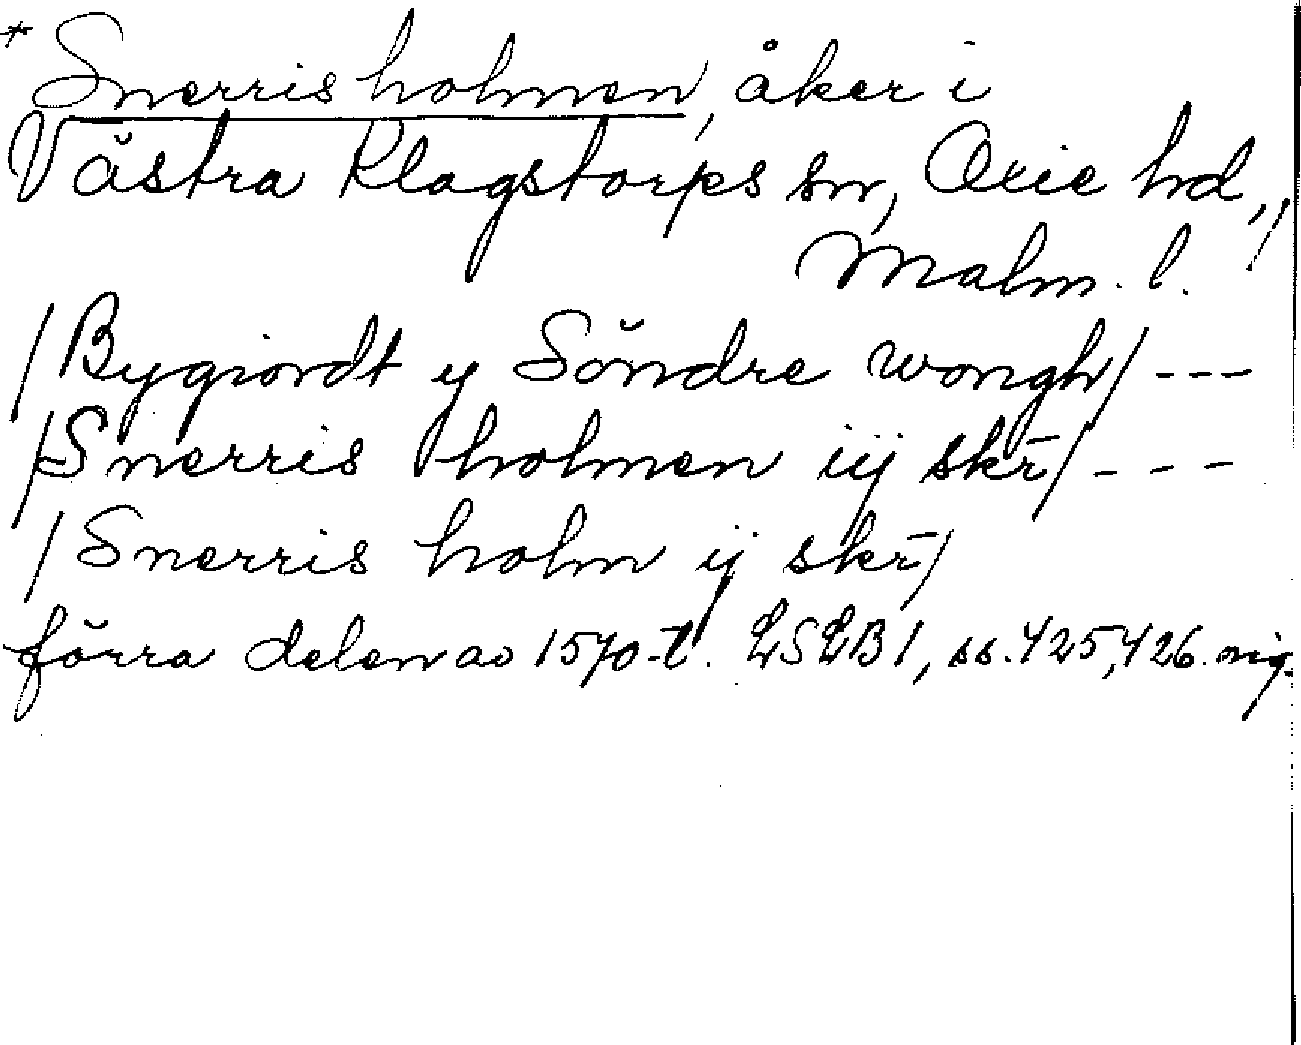 * Snerris holmen, åker i
Västra Klagstorps sn, Oxie hd,
Malm. l.
/Bygiordt y Söndre wongh/ ---
/Snerris holmen iij skr̄/ - - -
/Snerris holm ij skr̄/
förra delen av 1570-t. LSLB 1, ss. 425, 426.